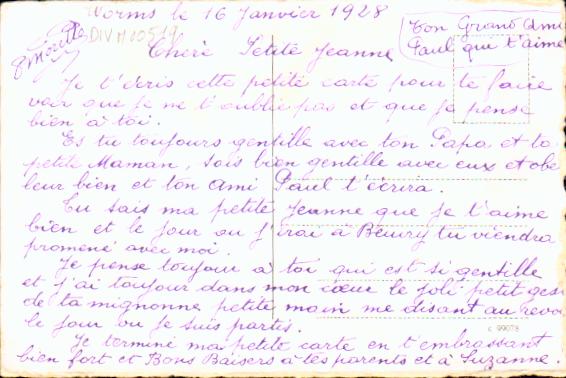 Worms le 16 Janvier 1928
DIVM00519
Ton Grand Ami
Paul qui t'aime
Cherè Petite Jeanne
Je t'ecris cette petite carte pour te faire
voir que je ne t'oublie pas et que je pense
bien a toi.
Es tu toujours gentille avec ton Papa et ta
petite Maman, sois bien gentille avec eux et obe
leur bien et ton Ami Paul t'écrira.
Tu sais ma petite Jeanne que je t'aime
bien et le jour ou J'irai à Beury tu viendra
promené avec moi.
Je pense toujour a toi qui est si gentille
et j'ai toujour dans mon cœur le joli petit gest
de ta mignonne petite main me disant au revoi
le jour ou je suis partis.
Je terminé ma petite carte en t'embrassant
bien fort et Bons Baisers a tes parents et a Suzanne.
c 99078